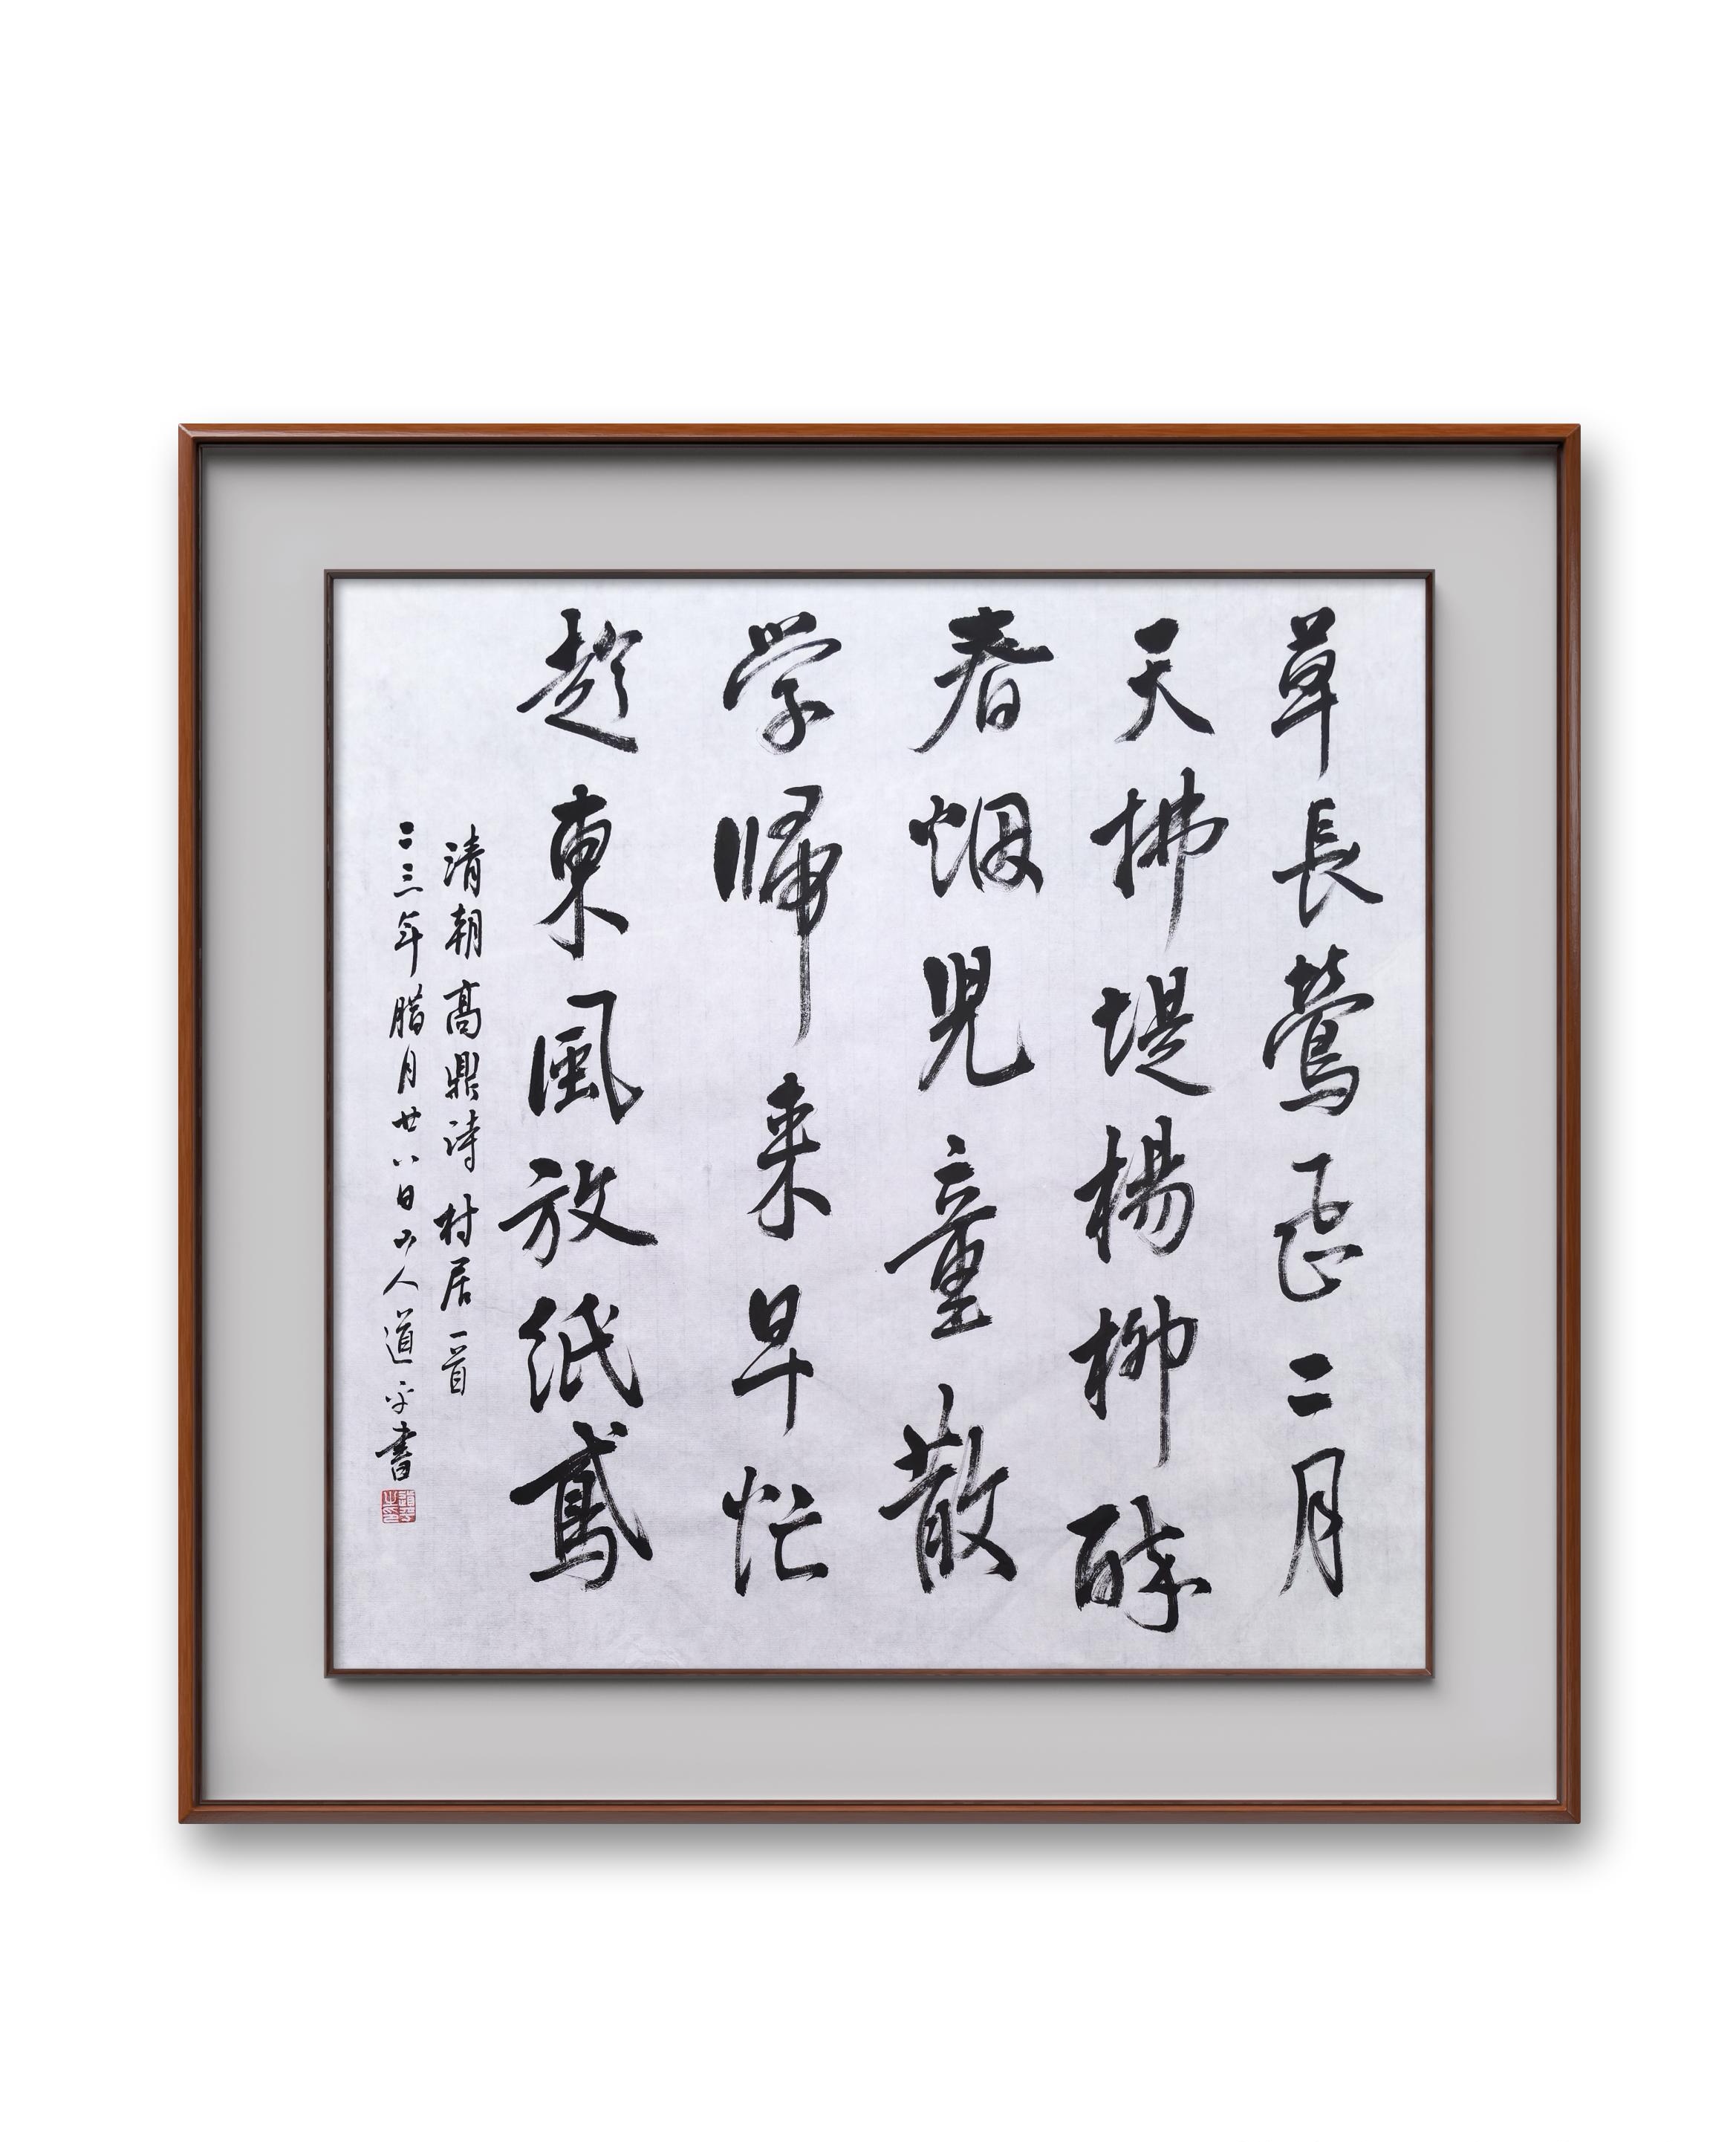 草長鶯飛二月
天拂堤楊柳酔
春烟児童散
学帰来早忙
趁東風放紙鳶
清朝高鼎詩 村居一首
二三年腊月廿八日山人道平書
道平之印